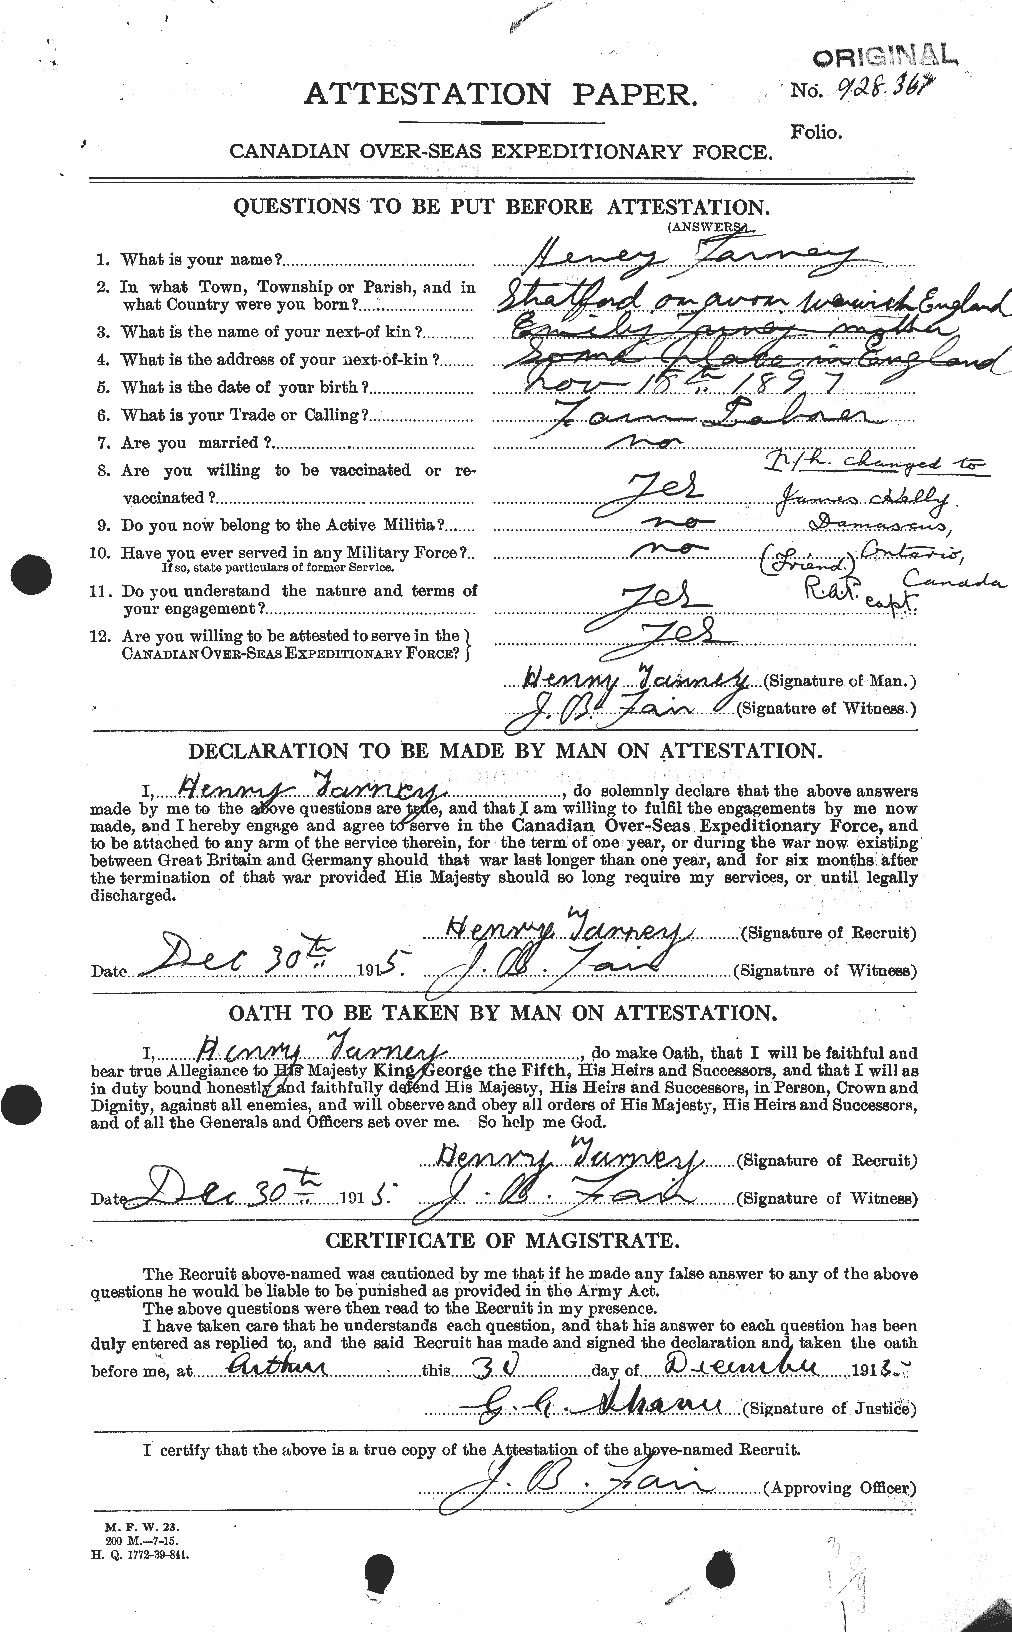 ORIGINAL
ATTESTATION PAPER.
No. 928.364
Folio.
CANADIAN OVER-SEAS EXPEDITIONARY FORCE.
QUESTIONS TO BE PUT BEFORE ATTESTATION.
(ANSWERS).
1. What is your name? Henry Tarney
2. In what Town, Township or Parish, and in
what Country were you born? Stratford on avon Warwick England
3. What is the name of your next-of kin? Emily Tarney mother
4. What is the address of your next-of-kin? Some Place in England
5. What is the date of your birth? Nov 15th 1897
6. What is your Trade or Calling? Farm Laborer
7. Are you married? no
8. Are you willing to be vaccinated or re-
vaccinated? Yes
N/k. changed to
James Kelly.
Damascus,
Ontario,
(friend)
Canada
capt.
9. Do you now belong to the Active Militia? no
10. Have you ever served in any Military Force? no
If so, state particulars of former Service.
11. Do you understand the nature and terms of
your engagement? Yes
12. Are you willing to be attested to serve in the
CANADIAN OVER-SEAS EXPEDITIONARY FORCE? Yes
Henry Tarney (Signature of Man.)
J. B. Fair (Signature of Witness.)
DECLARATION TO BE MADE BY MAN ON ATTESTATION.
I, Henry Tarney, do solemnly declare that the above answers
made by me to the above questions are true, and that I am willing to fulfil the engagements by me now
made, and I hereby engage and agree to serve in the Canadian Over-Seas Expeditionary Force, and
to be attached to any arm of the service therein, for the term of one year, or during the war now existing
between Great Britain and Germany should that war last longer than one year, and for six months after
the termination of that war provided His Majesty should so long require my services, or until legally
discharged.
Henry Tarney (Signature of Recruit)
Date Dec 30th 1915. J. B. Fair (Signature of Witness)
OATH TO BE TAKEN BY MAN ON ATTESTATION.
I, Henry Tarney, do make Oath, that I will be faithful and
bear true Allegiance to His Majesty King George the Fifth, His Heirs and Successors, and that I will as
in duty bound honestly and faithfully defend His Majesty, His Heirs and Successors, in Person, Crown and
Dignity, against all enemies, and will observe and obey all orders of His Majesty, His Heirs and Successors,
and of all the Generals and Officers set over me. So help me God.
Henry Tarney (Signature of Recruit)
Date Dec 30th 1915. J. B. Fair (Signature of Witness)
CERTIFICATE OF MAGISTRATE.
The Recruit above-named was cautioned by me that if he made any false answer to any of the above
questions he would be liable to be punished as provided in the Army Act.
The above questions were then read to the Recruit in my presence.
I have taken care that he understands each question, and that his answer to each question has been
duly entered as replied to, and the said Recruit has made and signed the declaration and taken the oath
before me, at Arthur this 30 day of December 1915
G. A. (Signature of Justice)
I certify that the above is a true copy of the Attestation of the above-named Recruit.
J. B. Fair (Approving Officer)
M. F. W. 23.
200 M.—7-15.
H. Q. 1772-39-841.